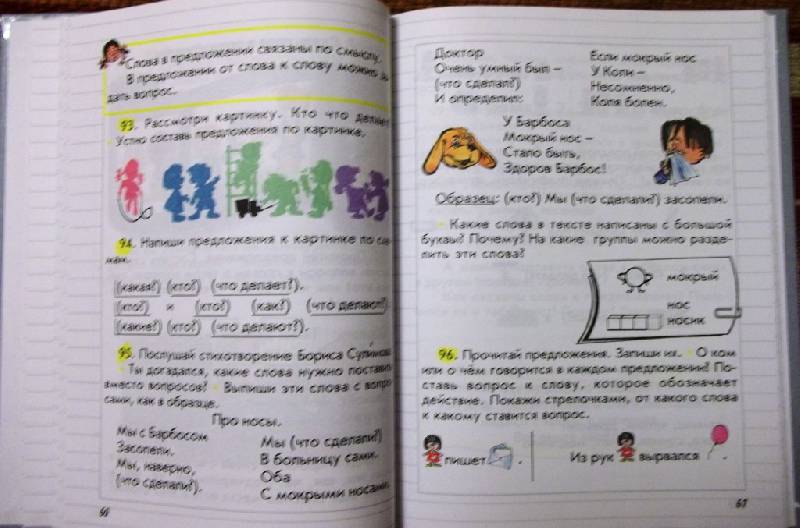 Слова в предложений связаны по смыслу.
В предложении от слова к слову можно за-
дать вопрос.
93. Рассмотри картинку. Кто что делает?
Устно составь предложения по картинке.
94. Напиши предложения к картинке по схе-
мам.
(какая?) (кто?) (что делает?).
(кто?) и (кто?) (как?) (что делают?).
(какие?) (кто?) (что делают?).
95. Послушай стихотворение Бориса Сулимова.
Ты догадался, какие слова нужно поставить
вместо вопросов? Выпиши эти слова с вопро-
сами, как в образце.
Про носы.
Мы с Барбосом
Засопели.
Мы, наверно,
(что сделали?).
Мы (что сделали?)
В больницу сами.
Оба
С мокрыми носами.
66
Доктор
Очень умный был –
(что сделал?)
И определил:
Если мокрый нос
У Коли –
Несомненно,
Коля болен.
У Барбоса
Мокрый нос –
Стало быть,
Здоров Барбос!
Образец: (кто?) Мы (что сделали?) засопели.
Какие слова в тексте написаны с большой
буквы? Почему? На какие группы можно разде-
лить эти слова?
мокрый
нос
носик
96. Прочитай предложения. Запиши их. О ком
или о чём говорится в каждом предложении? По-
ставь вопрос к слову, которое обозначает
действие. Покажи стрелочками, от какого слова
к какому ставится вопрос.
пишет .
Из рук вырвался .
67